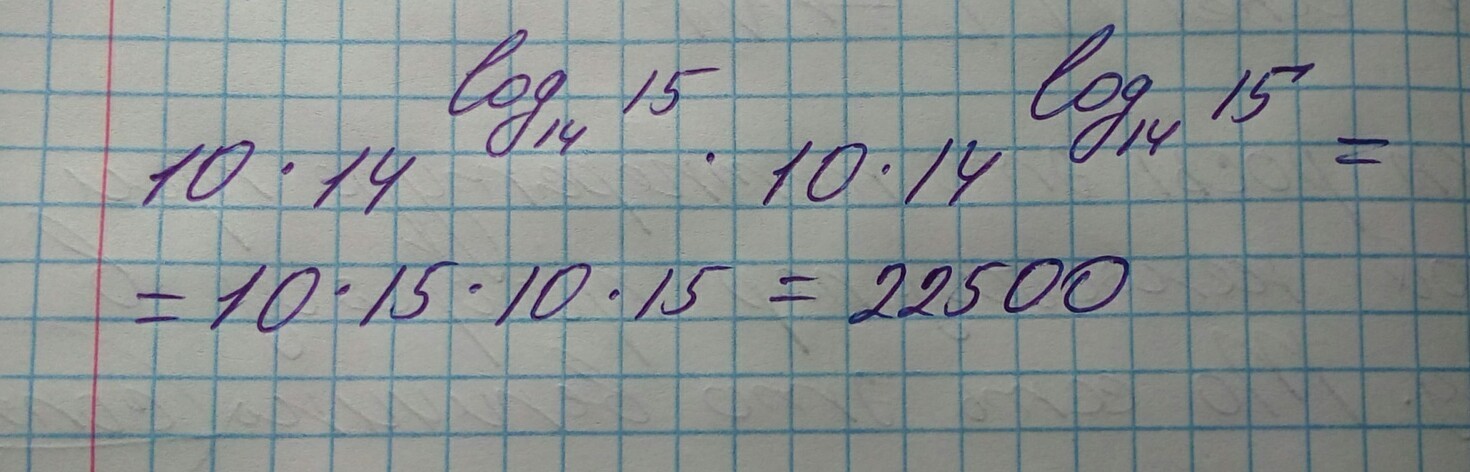 10 · 14^{log_{14} 15} · 10 · 14^{log_{14} 15} =
= 10 · 15 · 10 · 15 = 22500